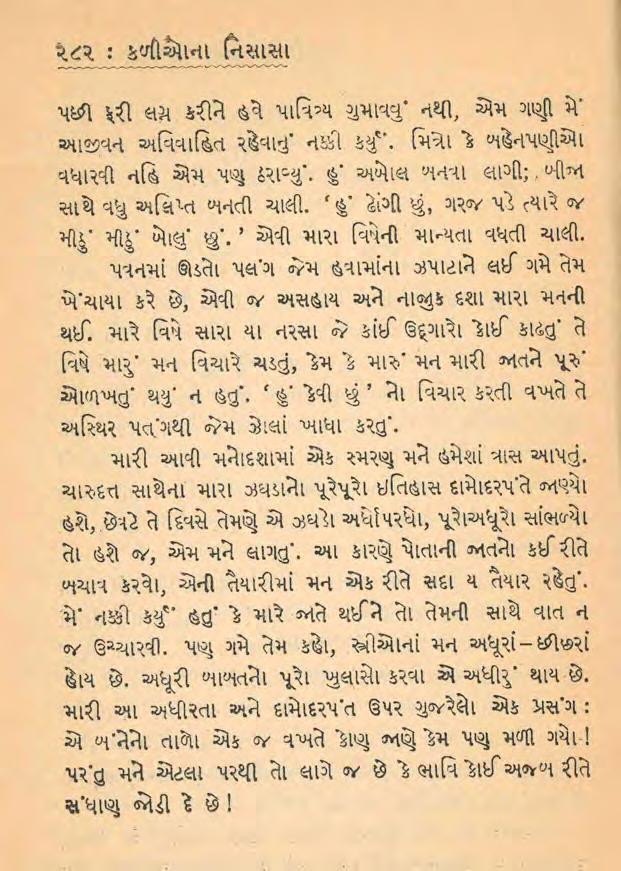 ૨૮૨ : કળીઓના નિસાસા
પછી ફરી લગ્ન કરીને હવે પાવિત્ર્ય ગુમાવવું નથી, એમ ગણી મેં
આજીવન અવિવાહિત રહેવાનું નક્કી કર્યું. મિત્રો કે બહેનપણીઓ
વધારવી નહિ એમ પણ ઠરાવ્યું. હું અબોલ બનવા લાગી; બીજા
સાથે વધુ અલિપ્ત બનતી ચાલી. ‘હું ઢોંગી છું, ગરજ પડે ત્યારે જ
મીઠું મીઠું બોલું છું.’ એવી મારા વિષેની માન્યતા વધતી ચાલી.
પવનમાં ઊડતો પલંગ જેમ હવામાંના ઝપાટાને લઈ ગમે તેમ
ખેંચાયા કરે છે, એવી જ અસહાય અને નાજુક દશા મારા મનની
થઈ. મારે વિષે સારા યા નરસા જે કાંઈ ઉદ્ગારો કોઈ કાઢતું તે
વિષે મારું મન વિચારે ચડતું, કેમ કે મારું મન મારી જાતને પૂરું
ઓળખતું થયું ન હતું. ‘હું કેવી છું’ નો વિચાર કરતી વખતે તે
અસ્થિર પતંગથી જેમ ઝોલાં ખાધા કરતું.
મારી આવી મનોદશામાં એક સ્મરણ મને હમેશાં ત્રાસ આપતું.
ચારુદત્ત સાથેના મારા ઝઘડાનો પૂરેપૂરો ઇતિહાસ દામોદરપંતે જાણ્યો
હશે, છેવટે તે દિવસે તેમણે એ ઝઘડો અર્ધોપરધો, પૂરોઅધૂરો સાંભળ્યો
તો હશે જ, એમ મને લાગતું. આ કારણે પોતાની જાતનો કઈ રીતે
બચાવ કરવો, એની તૈયારીમાં મન એક રીતે સદા ય તૈયાર રહેતું.
મેં નક્કી કર્યું હતું કે મારે જાતે થઈને તો તેમની સાથે વાત ન
જ ઉચ્ચારવી. પણ ગમે તેમ કહો, સ્ત્રીઓનાં મન અધૂરાં–છીછરાં
હોય છે. અધૂરી બાબતનો પૂરો ખુલાસો કરવા એ અધીરું થાય છે.
મારી આ અધીરતા અને દામોદરપંત ઉપર ગુજરેલો એક પ્રસંગ :
એ બંનેનો તાળો એક જ વખતે કોણ જાણે કેમ પણ મળી ગયો !
પરંતુ મને એટલા પરથી તો લાગે જ છે કે ભાવિ કોઈ અજબ રીતે
સંધાણ જોડી દે છે !